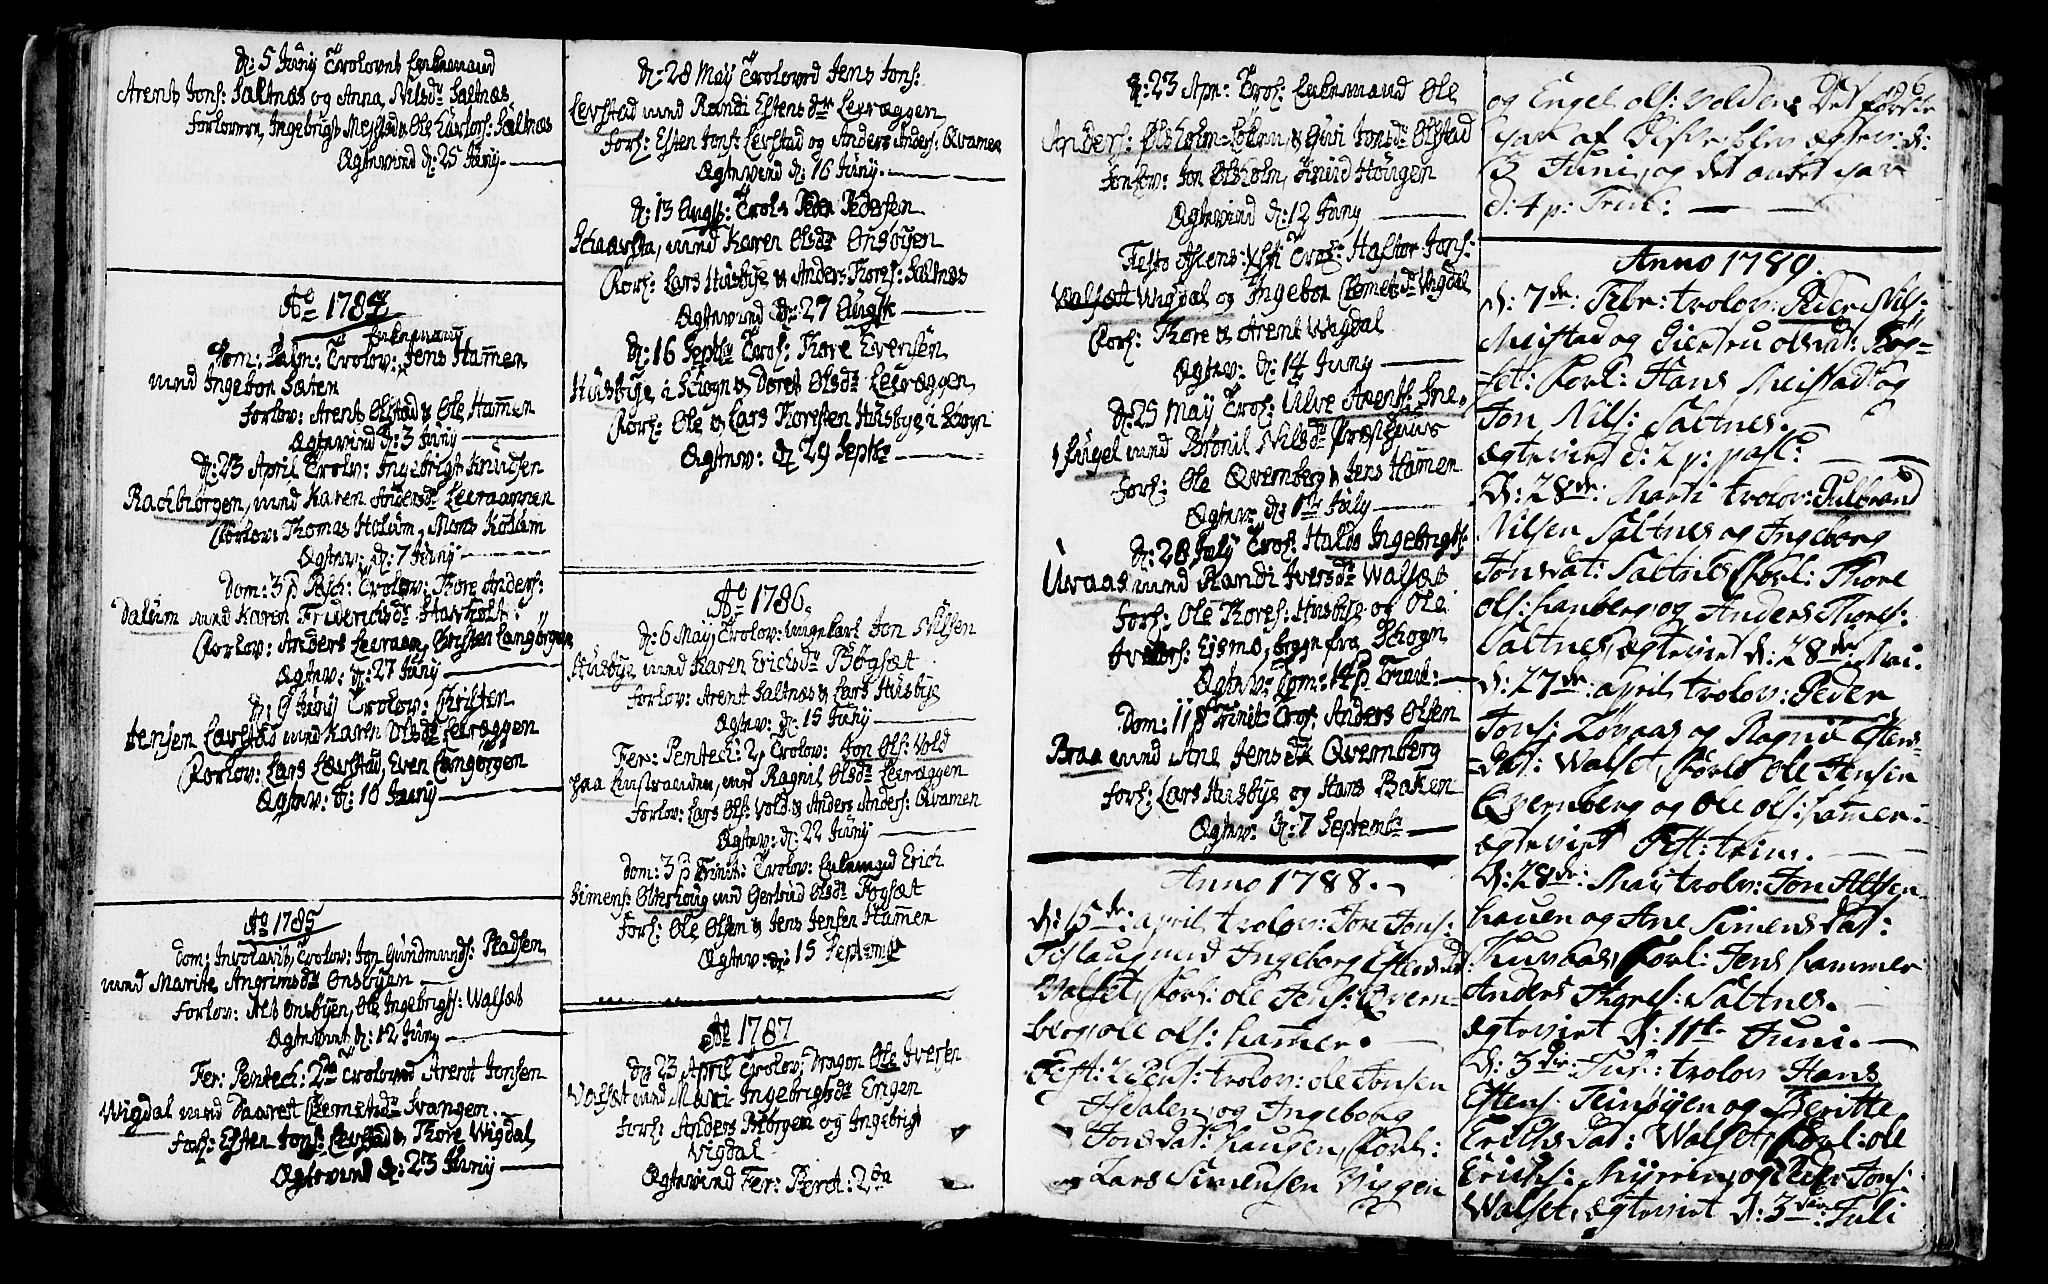 d: 5 Junij Trolovet Enkemand
Arent Jons: Saltnæs og Anna Nilsd: Saltnæs
forlovere, Ingebrigt Mestad & Ole Larsøe: Saltnæs
Ægteviet d: 25 Junij
Ao 1784
Enkemand
Dom: Palm: Trolov: Jens Hamen
med Ingebor Sæten
forlov: Arent Ølstad & Ole Hamen
Ægteviet d: 3 Junij
d: 23 April Trolov: Ingebrigt Knudsen
Rachbiørgen, med Karen Andersd: Leeraannen
Forlov: Thomas Holum, Mons Kollum
Ægtev: d: 7 Junij
Dom: 3 p Pasch: Trolov: Thore Anders:
Dalum med Karen Friderichsd: Havfolt
Forlov: Anders Leeraan, Christen Langørgen
Ægtev: d: 27 Junij
d: 9 Junij Trolov: Christen
Jensen Løvstad med Karen Olsd: Leeræggen
Forlov: Lars Løvstad, Even Langørgen
Ægtev: d: 10 Junij
Ao 1785
Dom: Invocavit, Trolov: Jon Gundmunds: Pladsen
med Marite Angrimsd: Onsøyen
Forlov: Nils Onsøyen, Ole Ingebrigts: Walsæt
Ægteviet d: 12 Junij
Fer: Pentech: 2da Trolovet Arent Jonsen
Wigdal med Daaret Clemetsd: Ivangen
Forl: Esten Jons: Levstad & Thore Wigdal
Ægteviet d: 23 Junij
d: 28 Maij Trolovet Jens Jons:
Levstad med Randi Estensd: Leeræggen
Forl: Esten Jons: Levstad og Anders Anders: Qvamen
Ægteviet d: 16 Junij
d: 13 Augs: Trolov Peder Pedersen
Skaavsta, med Karen Olsd: Onsøyen
Forl: Lars Husbye & Anders Thores: Saltnæs
Ægteviet d: 27 Augst
d: 16 Septbr Trol: Thore Evensen
Husbye i Skogn & Doret Olsd: Leeræggen
Forl: Ole & Lars Thoresen Husbye i Skogn
Ægtev: d 29 Septbr
Ao 1786
d: 6 Maij Trolov: ungekarl Jon Nilsen
Husbye med Karen Erichsd: Bøgsæt
forlov: Arent Saltnæs & Lars Husbye
Ægtev: d: 15 Junij
Fer: Pentech: 2, Trolov: Jon Ols: Vold
paa med Ragnil Olsd: Leeræggen
Forlov: Lars Ols: Vold & Anders Anders: Qvamen
Ægtev: d: 22 Junij
Dom: 3 p Trinit: Trolov: Enkemand Erich
Simens: Ølteshoug med Gertrud Olsd: Fogsæt
Forl: Ole Olsen & Jens Jensen Hamen
Ægtev: d: 15 Septembr
Ao 1787
d: 23 April Trolov: Dragon Ole Iversen
Valsæt med Mari Ingebrigtsd: Engen
Forl: Anders Biørgen og Ingebrigt
Vigdal
Ægteviet Fer: Pent: 2da
d: 23 Apr: Trol: Enkemand Ole
Anders: Ølsholm & Guri Jonsd: Ølstad
Forlov: Jon Ølsholm, Hougen
Ægteviet d: 12 Junij
Festo Ascens: Xsti Trol: Hastor Jons:
Walsæt Wigdal og Ingebor Clemetsd: Wigdal
Forl: Thore & Arent Wigdal
Ægtev: d: 14 Junij
d: 25 Maij Trol: Ulve Arents: Sne-
fugel med Brønil Nilsd: Præsthuus
Forl: Ole Qvernberg & Jens Hamen
Ægtev: d: 1ste July
d: 28 July Trol: Haldo Ingebrigts:
Uvaas med Randi Iversd: Walsæt
Forl: Ole Thores: Husbye og Ole
Ivers: Eismo, begge fra Skogn
Ægtev: Dom: 14 p Trinit:
Dom: 11 p Trinit: Trol: Anders Olsen
Braa med Ane Jensd: Qvernberg
Forl: Lars Husbye og Hans Baken
Ægtev: d: 7 Septembr
Anno 1788.
d: 15de: april trolov: Tore Jons:
Teslaug med Ingeborg Estensd:
Valset, Forl: ole Jens: Qvern-
berg, ole ols: hammer.
Fest: 2 Pent: trolov: ole Jonsen
Hdalen, og Ingeborg
Jonsdat: haugen, Forl:
Lars Simensen Viggen
og Engel ols: Volden. Det første
par af disse blev ægtev: d:
Juni, og det andet par
d: 4 p: Trinit:
Anno 1789.
d: 7de: Febr: trolov: Peder Nils:
Meistad og Giertru olsdat: Føg-
set: Forl: Hans Meistad og
Jon Nils: Saltnes.
ægteviet d: 2 p: pasc:
d: 28de: Marti trolov: Gulbrand
Nilsen Saltnes og Ingeborg
Jonsdat: Saltnes, Forl: Thore
ols: hanberg, og Anders Thores:
Saltnes, ægteviet d: 28de: Mai.
d: 27de: april trolov: Peder
Jons: Løvaas og Ragnil Estens-
dat: Walset, Forl: Ole Jensen
Qvernberg og ole ols: hamer.
ægteviet Fest: trin.
d: 28de: Maij trolov: Jon Alfsen
hauen og Ane Simensdat:
Kuvaas, Forl: Jens hammer
Anders Thores: Saltnes.
ægteviet d: 11te Juni.
d: 3die: Jul: trolov Hans
Estens: Teinøyen og Beritte
Erichsdat: Walset, Forl: ole
Erichs: Myrren, og Peder Jons:
Walset, ægteviet d: 3die: Juli